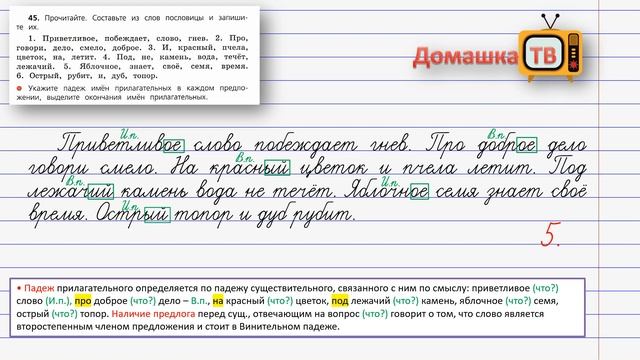 45. Прочитайте. Составьте из слов пословицы и запиши-
те их.
1. Приветливое, побеждает, слово, гнев. 2. Про,
говори, дело, смело, доброе. 3. И, красный, пчела,
цветок, на, летит. 4. Под, не, камень, вода, течёт,
лежачий. 5. Яблочное, знает, своё, семя, время.
6. Острый, рубит, и, дуб, топор.
Укажите падеж имён прилагательных в каждом предло-
жении, выделите окончания имён прилагательных.
Домашка ТВ
И.п. В.п.
Приветливое слово побеждает гнев. Про доброе дело
В.п.
говори смело. На красный цветок и пчела летит. Под
В.п. И.п.
лежачий камень вода не течёт. Яблочное семя знает своё
И.п.
время. Острый топор и дуб рубит.
5.
• Падеж прилагательного определяется по падежу существительного, связанного с ним по смыслу: приветливое (что?)
слово (И.п.), про доброе (что?) дело – В.п., на красный (что?) цветок, под лежачий (что?) камень, яблочное (что?) семя,
острый (что?) топор. Наличие предлога перед сущ., отвечающим на вопрос (что?) говорит о том, что слово является
второстепенным членом предложения и стоит в Винительном падеже.